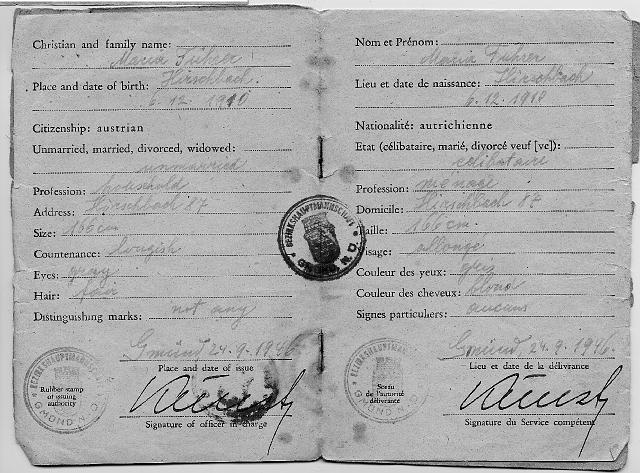 Christian and family name:
Maria Führer
Hirschbach
Place and date of birth:
6.12.1910
Citizenship: austrian
Unmarried, married, divorced, widowed:
unmarried
Profession: household
Address: Hirschbach 87
Size: 166 cm
Countenance: longish
Eyes: gray
Hair: fair
Distinguishing marks: not any
Gmünd 24.9.1946
Place and date of issue
Rubber stamp
of issuing
authority
Signature of officer in charge
BEZIRKSHAUPTMANNSCHAFT
GMÜND N.Ö.
Nom et Prénom:
Maria Führer
Hirschbach
Lieu et date de naissance:
6.12.1910
Nationalité: autrichienne
Etat (célibataire, marié, divorcé veuf [ve]):
célibataire
Profession: ménage
Domicile: Hirschbach 87
Taille: 166 cm
Visage: allongé
Couleur des yeux: gris
Couleur des cheveux: blond
Signes particuliers: aucuns
Gmünd 24.9.1946
Lieu et date de la délivrance
Sceau
de l'autorité
délivrante
Signature du Service compétent